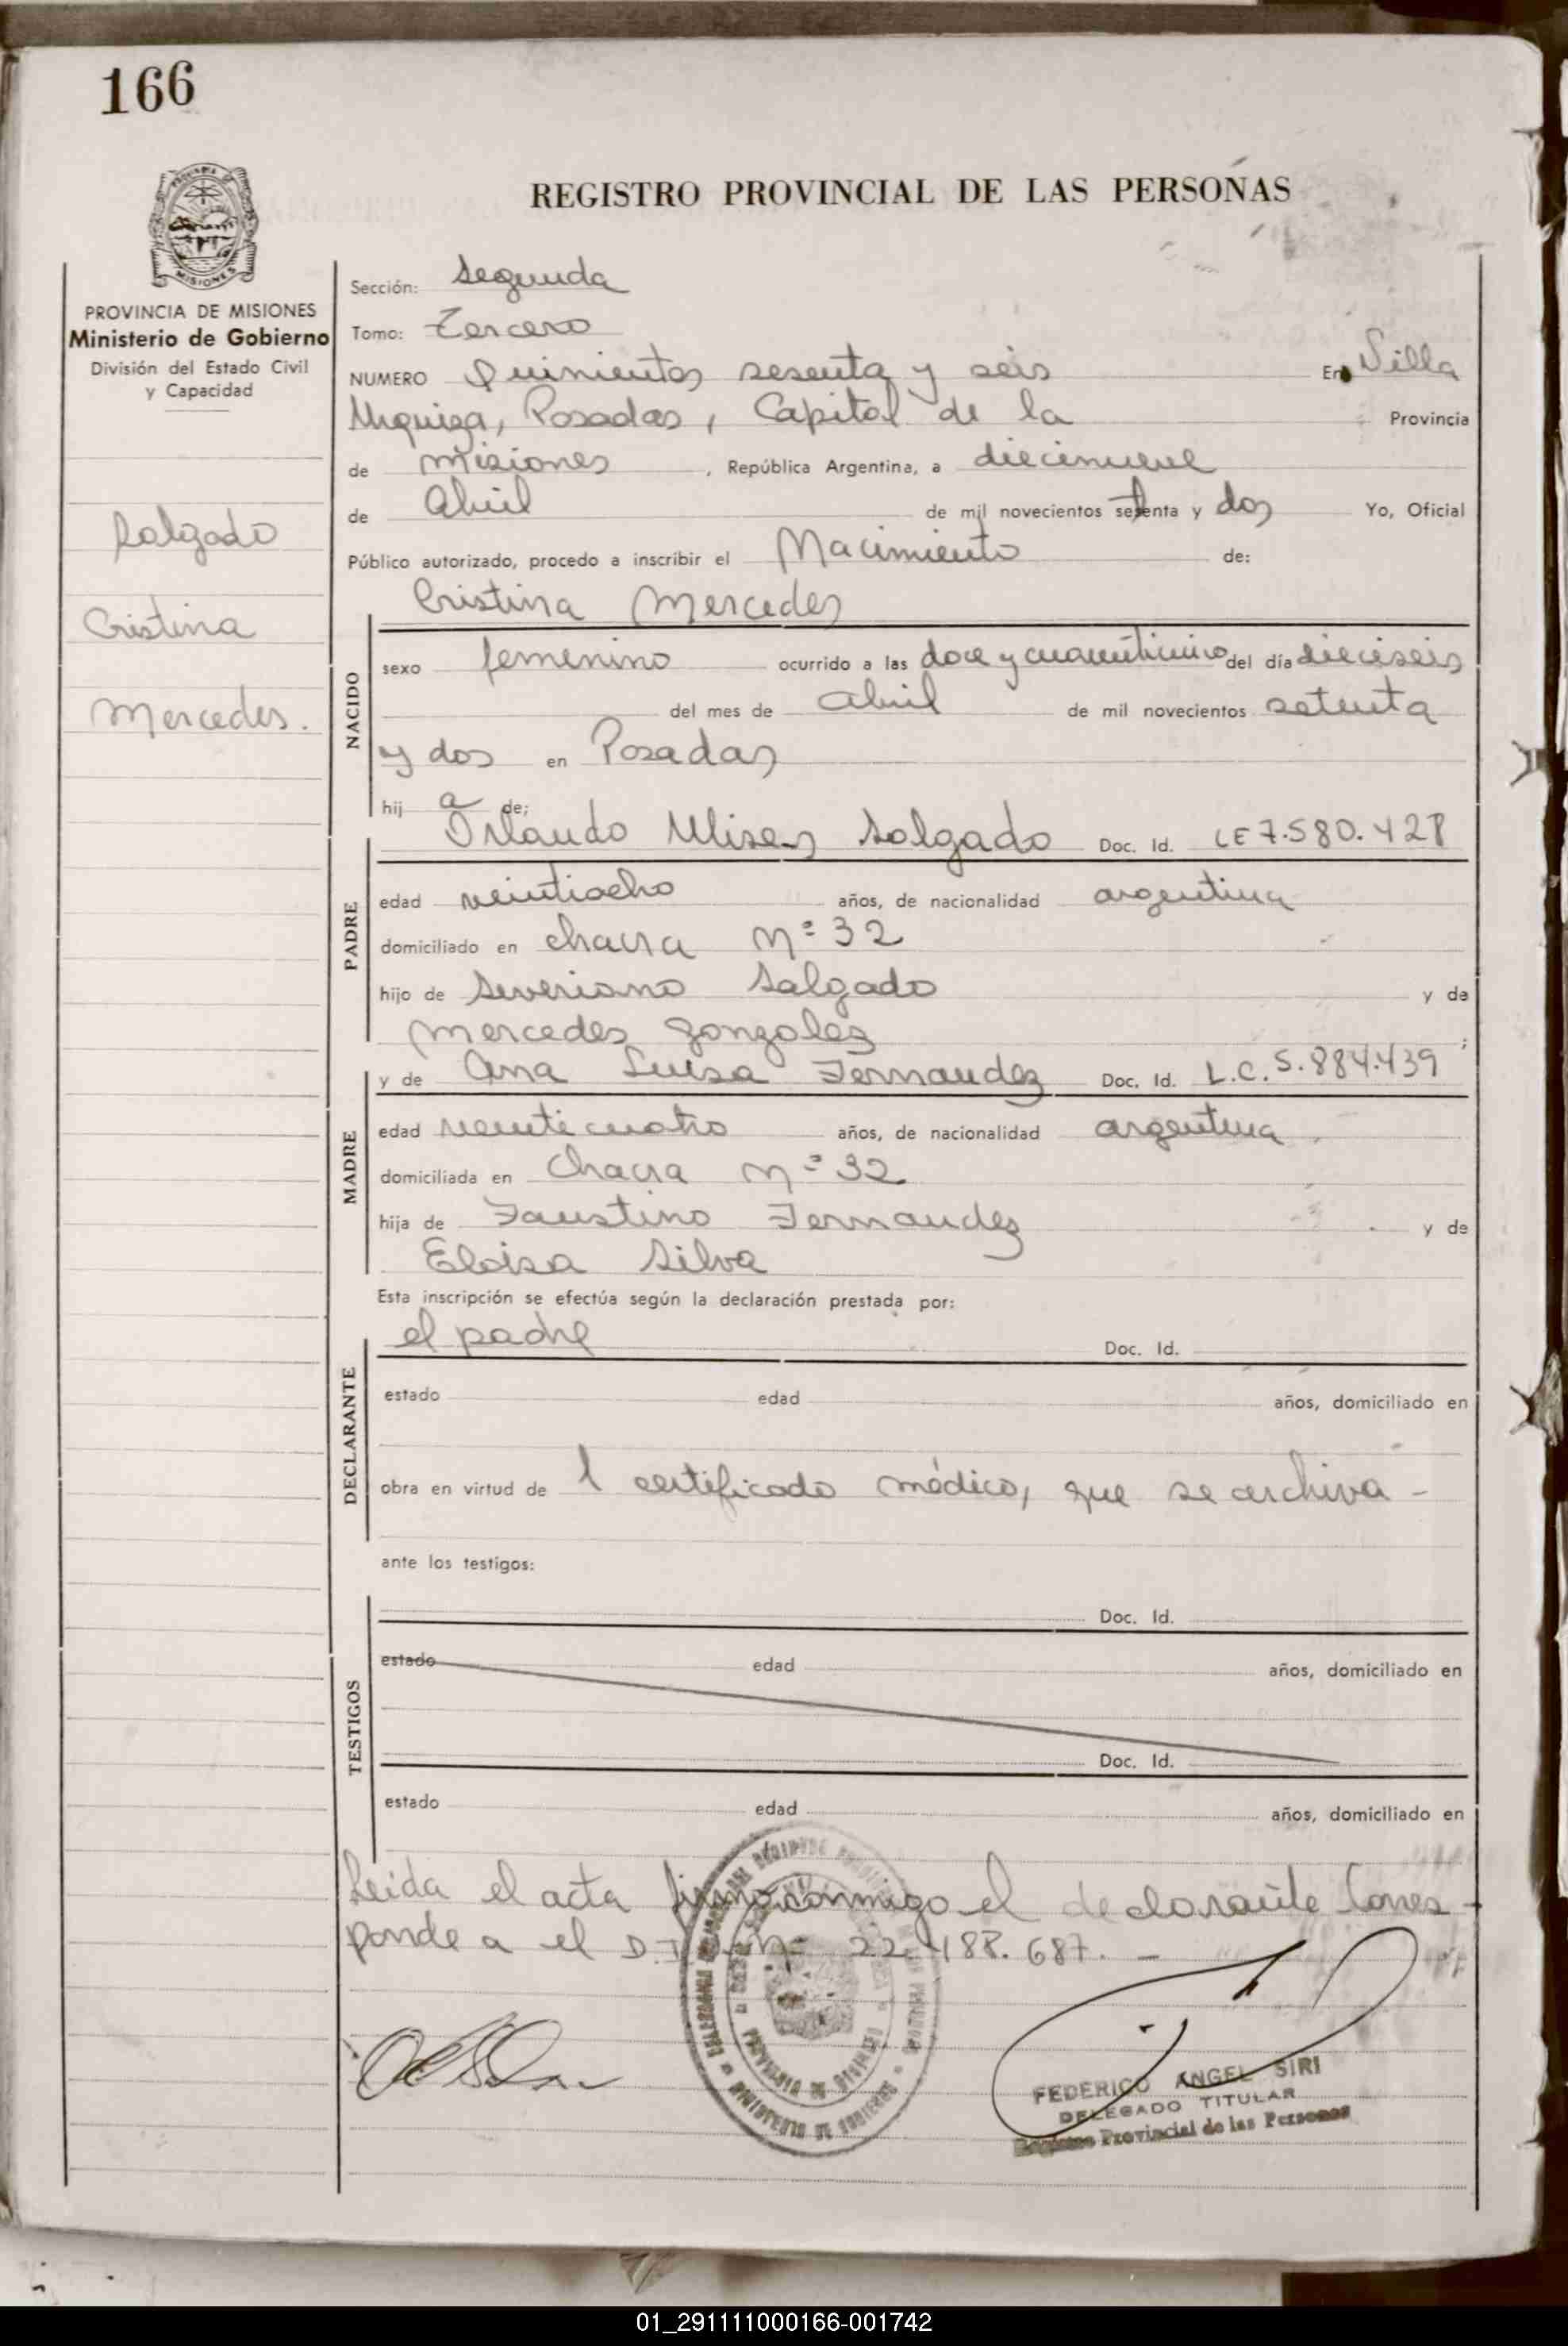 166
REGISTRO PROVINCIAL DE LAS PERSONAS
MISIONES
PROVINCIA DE MISIONES
Ministerio de Gobierno
División del Estado Civil
y Capacidad
Salgado
Cristina
Mercedes.
Sección: Segunda
Tomo: Tercero
NUMERO Quinientos sesenta y seis En Villa
Urquiza, Posadas, Capital de la Provincia
de Misiones, República Argentina, a diecinueve
de Abril de mil novecientos setenta y dos Yo, Oficial
Público autorizado, procedo a inscribir el Nacimiento de:
Cristina Mercedes
NACIDO
sexo femenino ocurrido a las doce y cuarenticinco del día dieciseis
del mes de abril de mil novecientos setenta
y dos en Posadas
hij a de;
Orlando Ulises Salgado Doc. Id. LE 7.580.428
PADRE
edad veintiocho años, de nacionalidad argentina
domiciliado en chacra Nº 32
hijo de Severiano Salgado y de
Mercedes Gonzalez ;
y de Ana Luisa Fernandez Doc. Id. L.C. 5.884.439
MADRE
edad veinticuatro años, de nacionalidad argentina
domiciliada en Chacra Nº 32
hija de Faustino Fernandez y de
Eloisa Silva
Esta inscripción se efectúa según la declaración prestada por:
el padre Doc. Id.
DECLARANTE
estado edad años, domiciliado en
obra en virtud de 1 certificado médico, que se archiva -
ante los testigos:
Doc. Id.
TESTIGOS
estado edad años, domiciliado en
Doc. Id.
estado edad años, domiciliado en
Leida el acta firma conmigo el declarante Corres-
ponde a el D.I. Nº 22.188.687. -
PROVINCIA DE MISIONES
MINISTERIO DE GOBIERNO
FEDERICO ANGEL SIRI
DELEGADO TITULAR
Registro Provincial de las Personas
01_291111000166-001742